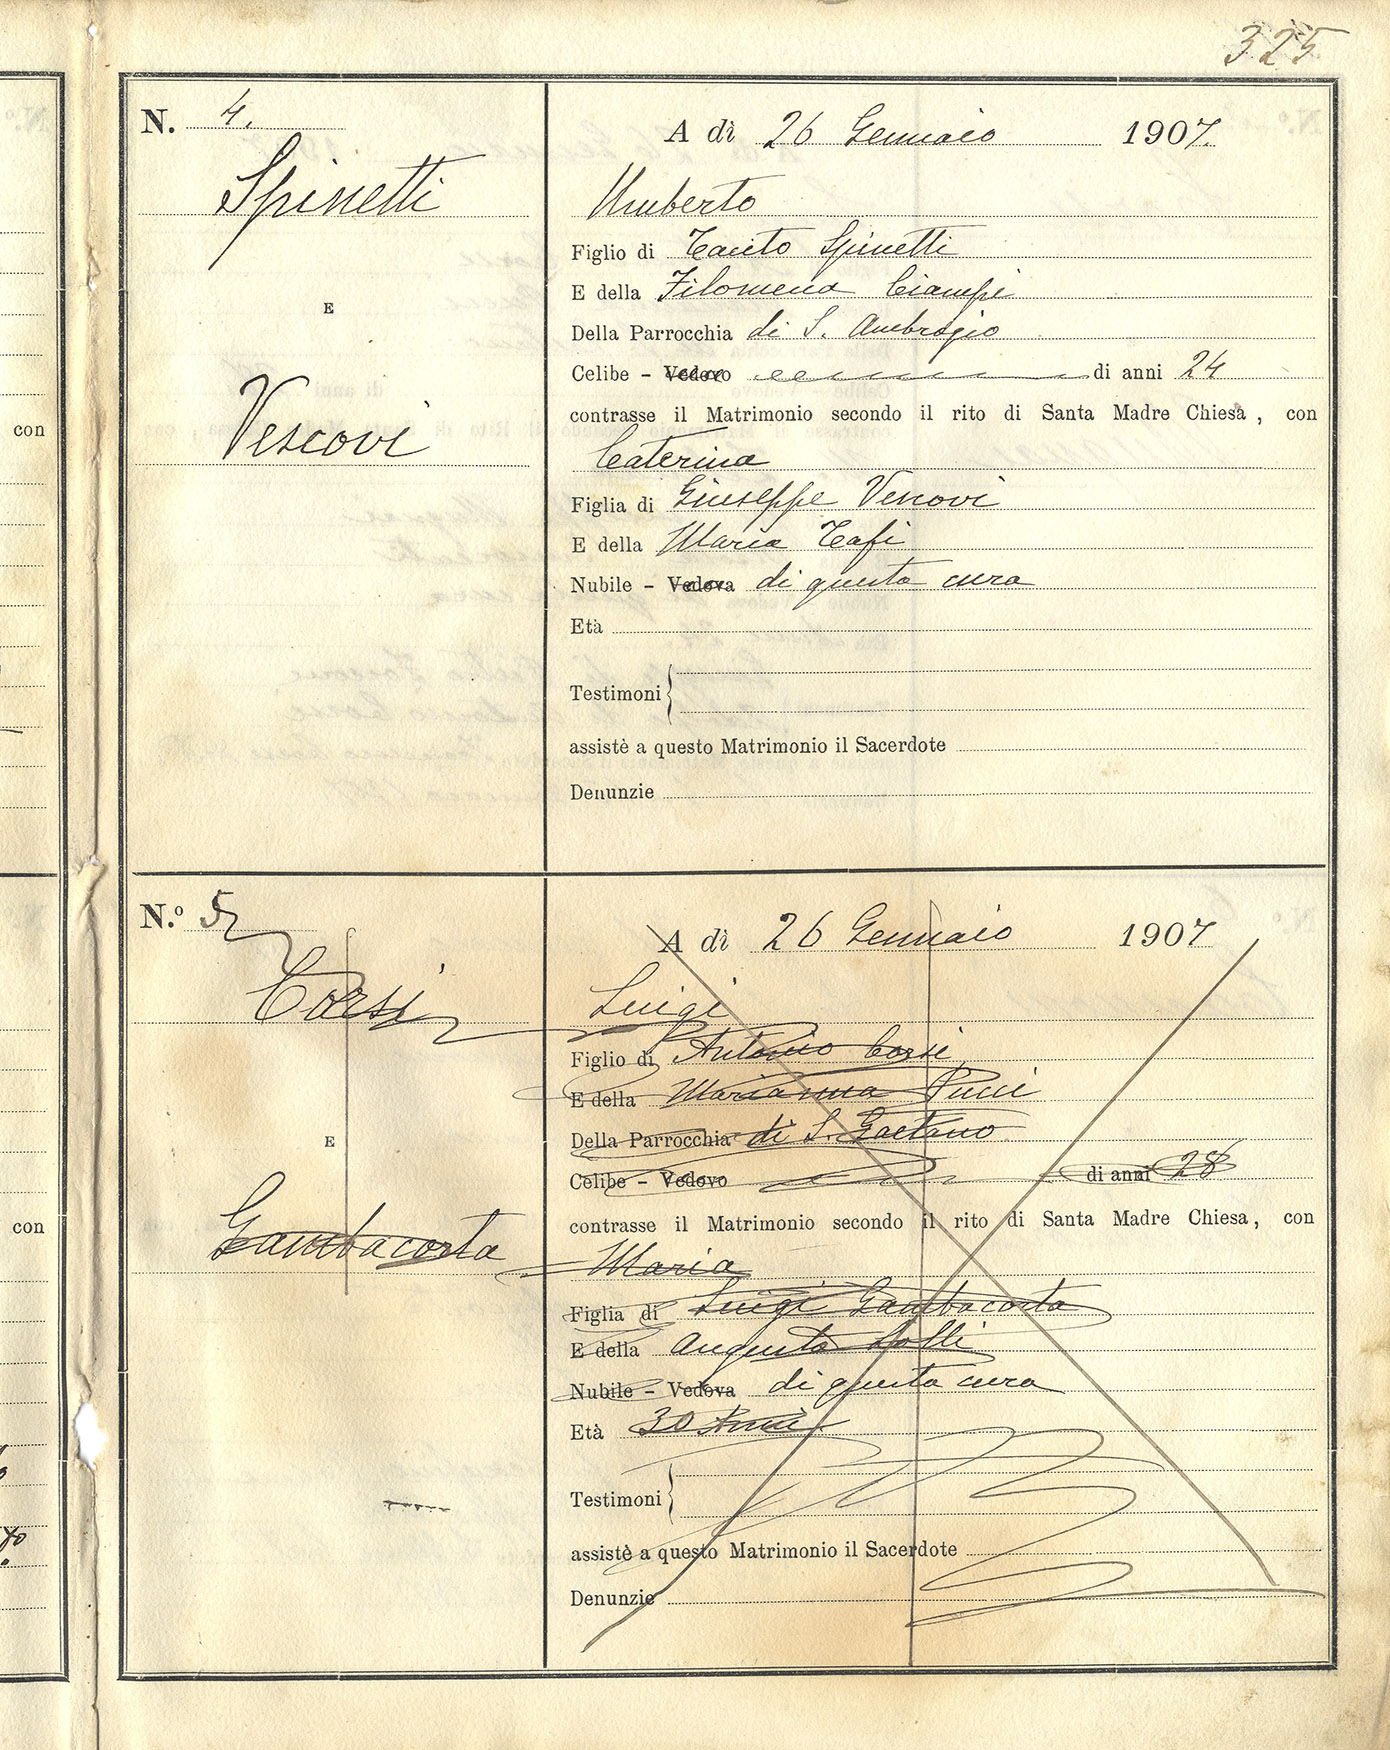 325
N. 4.
A dì 26 Gennaio 1907.
Spinetti
Umberto
Figlio di Tacito Spinetti
E della Filomena Ciampi
E
Della Parrocchia di S. Ambrogio
Celibe - Vedovo di anni 24
contrasse il Matrimonio secondo il rito di Santa Madre Chiesa, con
Vescovi
Caterina
Figlia di Giuseppe Vescovi
E della Maria Tafi
Nubile - Vedova di questa cura
Età
Testimoni
assistè a questo Matrimonio il Sacerdote
Denunzie
N.º 5
A dì 26 Gennaio 1907
Corsi
Luigi
Figlio di Antonio Corsi
E della Marianna Pucci
E
Della Parrocchia di S. Gaetano
Celibe - Vedovo di anni 28
contrasse il Matrimonio secondo il rito di Santa Madre Chiesa, con
Gambacorta
Maria
Figlia di Luigi Gambacorta
E della Augusta
Nubile - Vedova di questa cura
Età 30 Anni
Testimoni
assistè a questo Matrimonio il Sacerdote
Denunzie
con
con